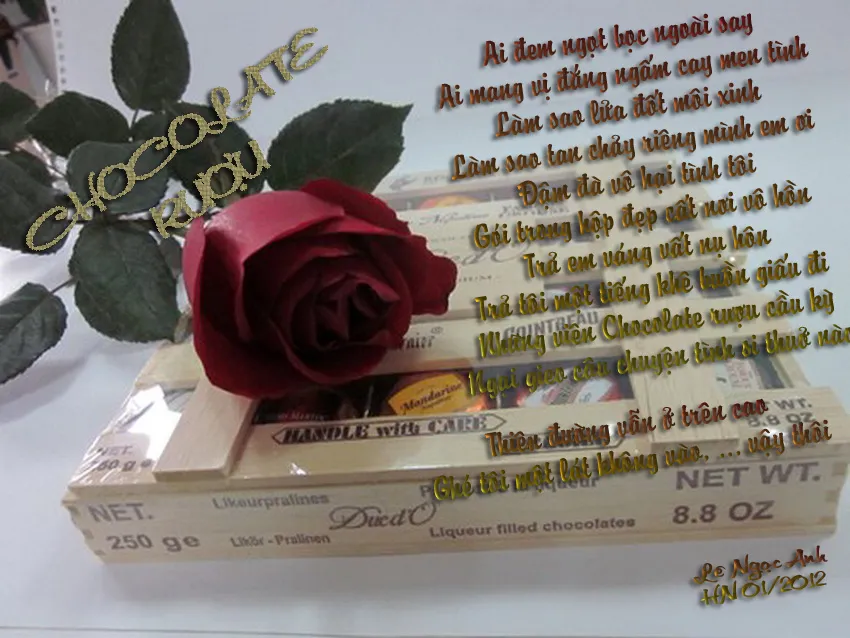 CHOCOLATE
RƯỢU
Ai đem ngọt bọc ngoài say
Ai mang vị đắng ngấm cay men tình
Làm sao lửa đốt môi xinh
Làm sao tan chảy riêng mình em ơi
Đậm đà vô hại tình tôi
Gói trong hộp đẹp cất nơi vô hồn
Trả em váng vất nụ hôn
Trả tôi một tiếng khê buồn giấu đi
Những viên Chocolate rượu cầu kỳ
Ngai gieo câu chuyện tình si thuở nào
Thiên đường vẫn ở trên cao
Ghé tôi một lát không nào, ... vậy thôi
Lê Ngọc Anh
HN 01/2012
COINTREAU
Mandarine
HANDLE with CARE
NET.
250 ge
Likeurpralines
Likör - Pralinen
Duc d'O
Liqueur filled chocolates
NET WT.
8.8 OZ
WT.
8.8 OZ